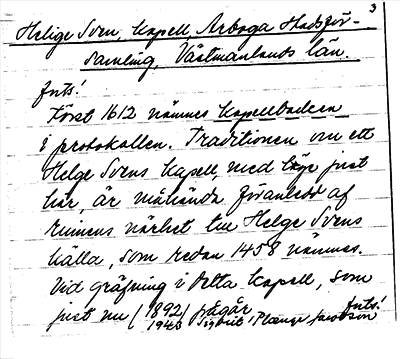 3
Helige Sven, kapell, Arboga stadsför-
samling, Västmanlands län.
forts!
Först 1612 nämnes kapellbacken
i protokollen. Traditionen om ett
Helge Svens kapell med läge just
här är måhända föranledd af
ruinens närhet till Helge Svens
källa, som redan 1458 nämnes.
Vid gräfning i detta kapell, som
just nu (1892) pågår forts!
1940 Sigbrit Plænge Jacobson